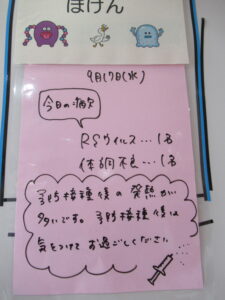 ほけん
9月17日(水)
今日の病欠
RSウイルス…1名
体調不良…1名
予防接種後の発熱が
多いです。予防接種後は
気をつけてお過ごしください。